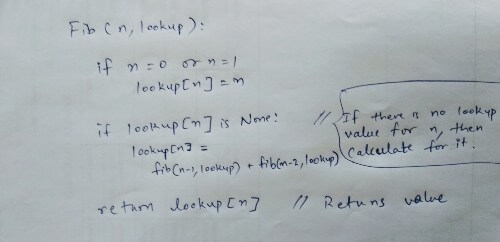 Fib (n, lookup):
if n=0 or n=1
lookup[n] = n
if lookup[n] is None: // If there is no lookup
lookup[n] = value for n, then
fib(n-1, lookup) + fib(n-2, lookup) Calculate for it.
return lookup[n] // Returns value